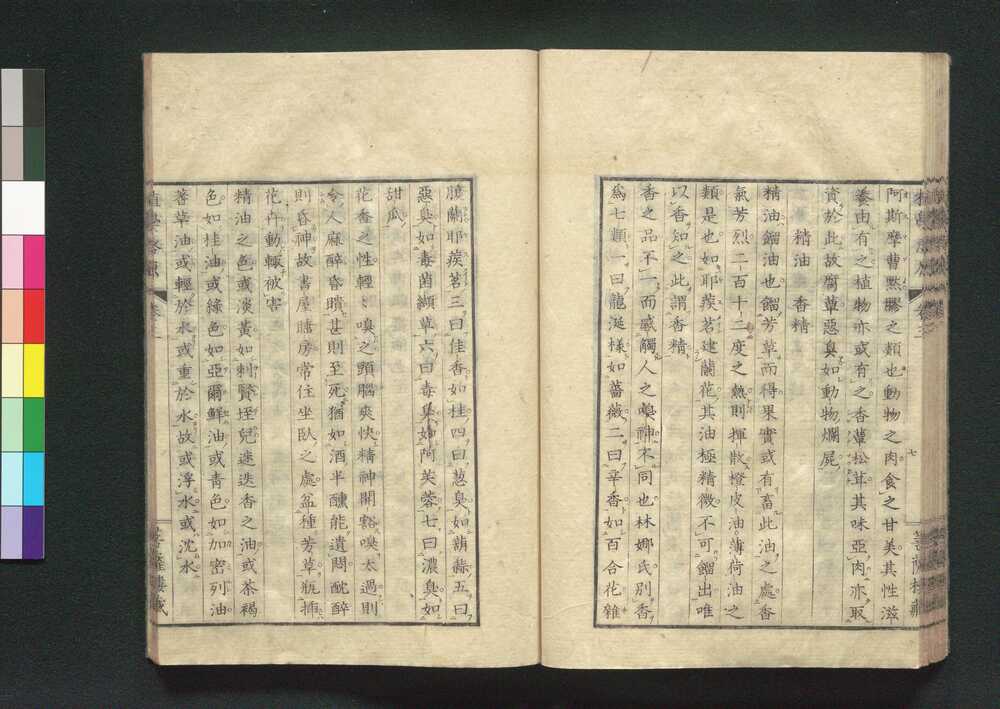 阿斯摩曹黙膠之類也動物之肉食之甘美其性滋
養由有之植物亦或有之香蕈松茸其味亞肉亦取
資於此故腐草惡臭如動物爛屍
精油 香精
精油餾油也餾芳草而得果實或有畜此油之處香
氣芳烈二百十二度之熱則揮散橙皮油薄荷油之
類是也如耶蒺茗建蘭花其油極精微不可餾出唯
以香知之此謂香精
香之品不一而感觸人之嗅神不同也林娜氏別香
爲七類一曰龍涎樣如薔薇二曰辛香如百合花雜
腹蘭耶蒺茗三曰佳香如桂四曰葱臭如葫蒜五曰
惡臭如毒菌纈草六曰毒臭如阿芙蓉七曰濃臭如
甜瓜
花香之性輕輕嗅之頭腦爽快精神開豁嗅太過則
令人麻醉昏瞶甚則至死猶如酒半醺能遣悶酖醉
則昏神故書屋賭房常住坐臥之處盆種芳草瓶揷
花卉動輙被害
精油之色或淡黃如剌賢埊兒迷迭香之油或茶褐
色如桂油或綠色如亞爾鮮油或青色如加密列油
善草油或輕於水或重於水故或浮水或沈水